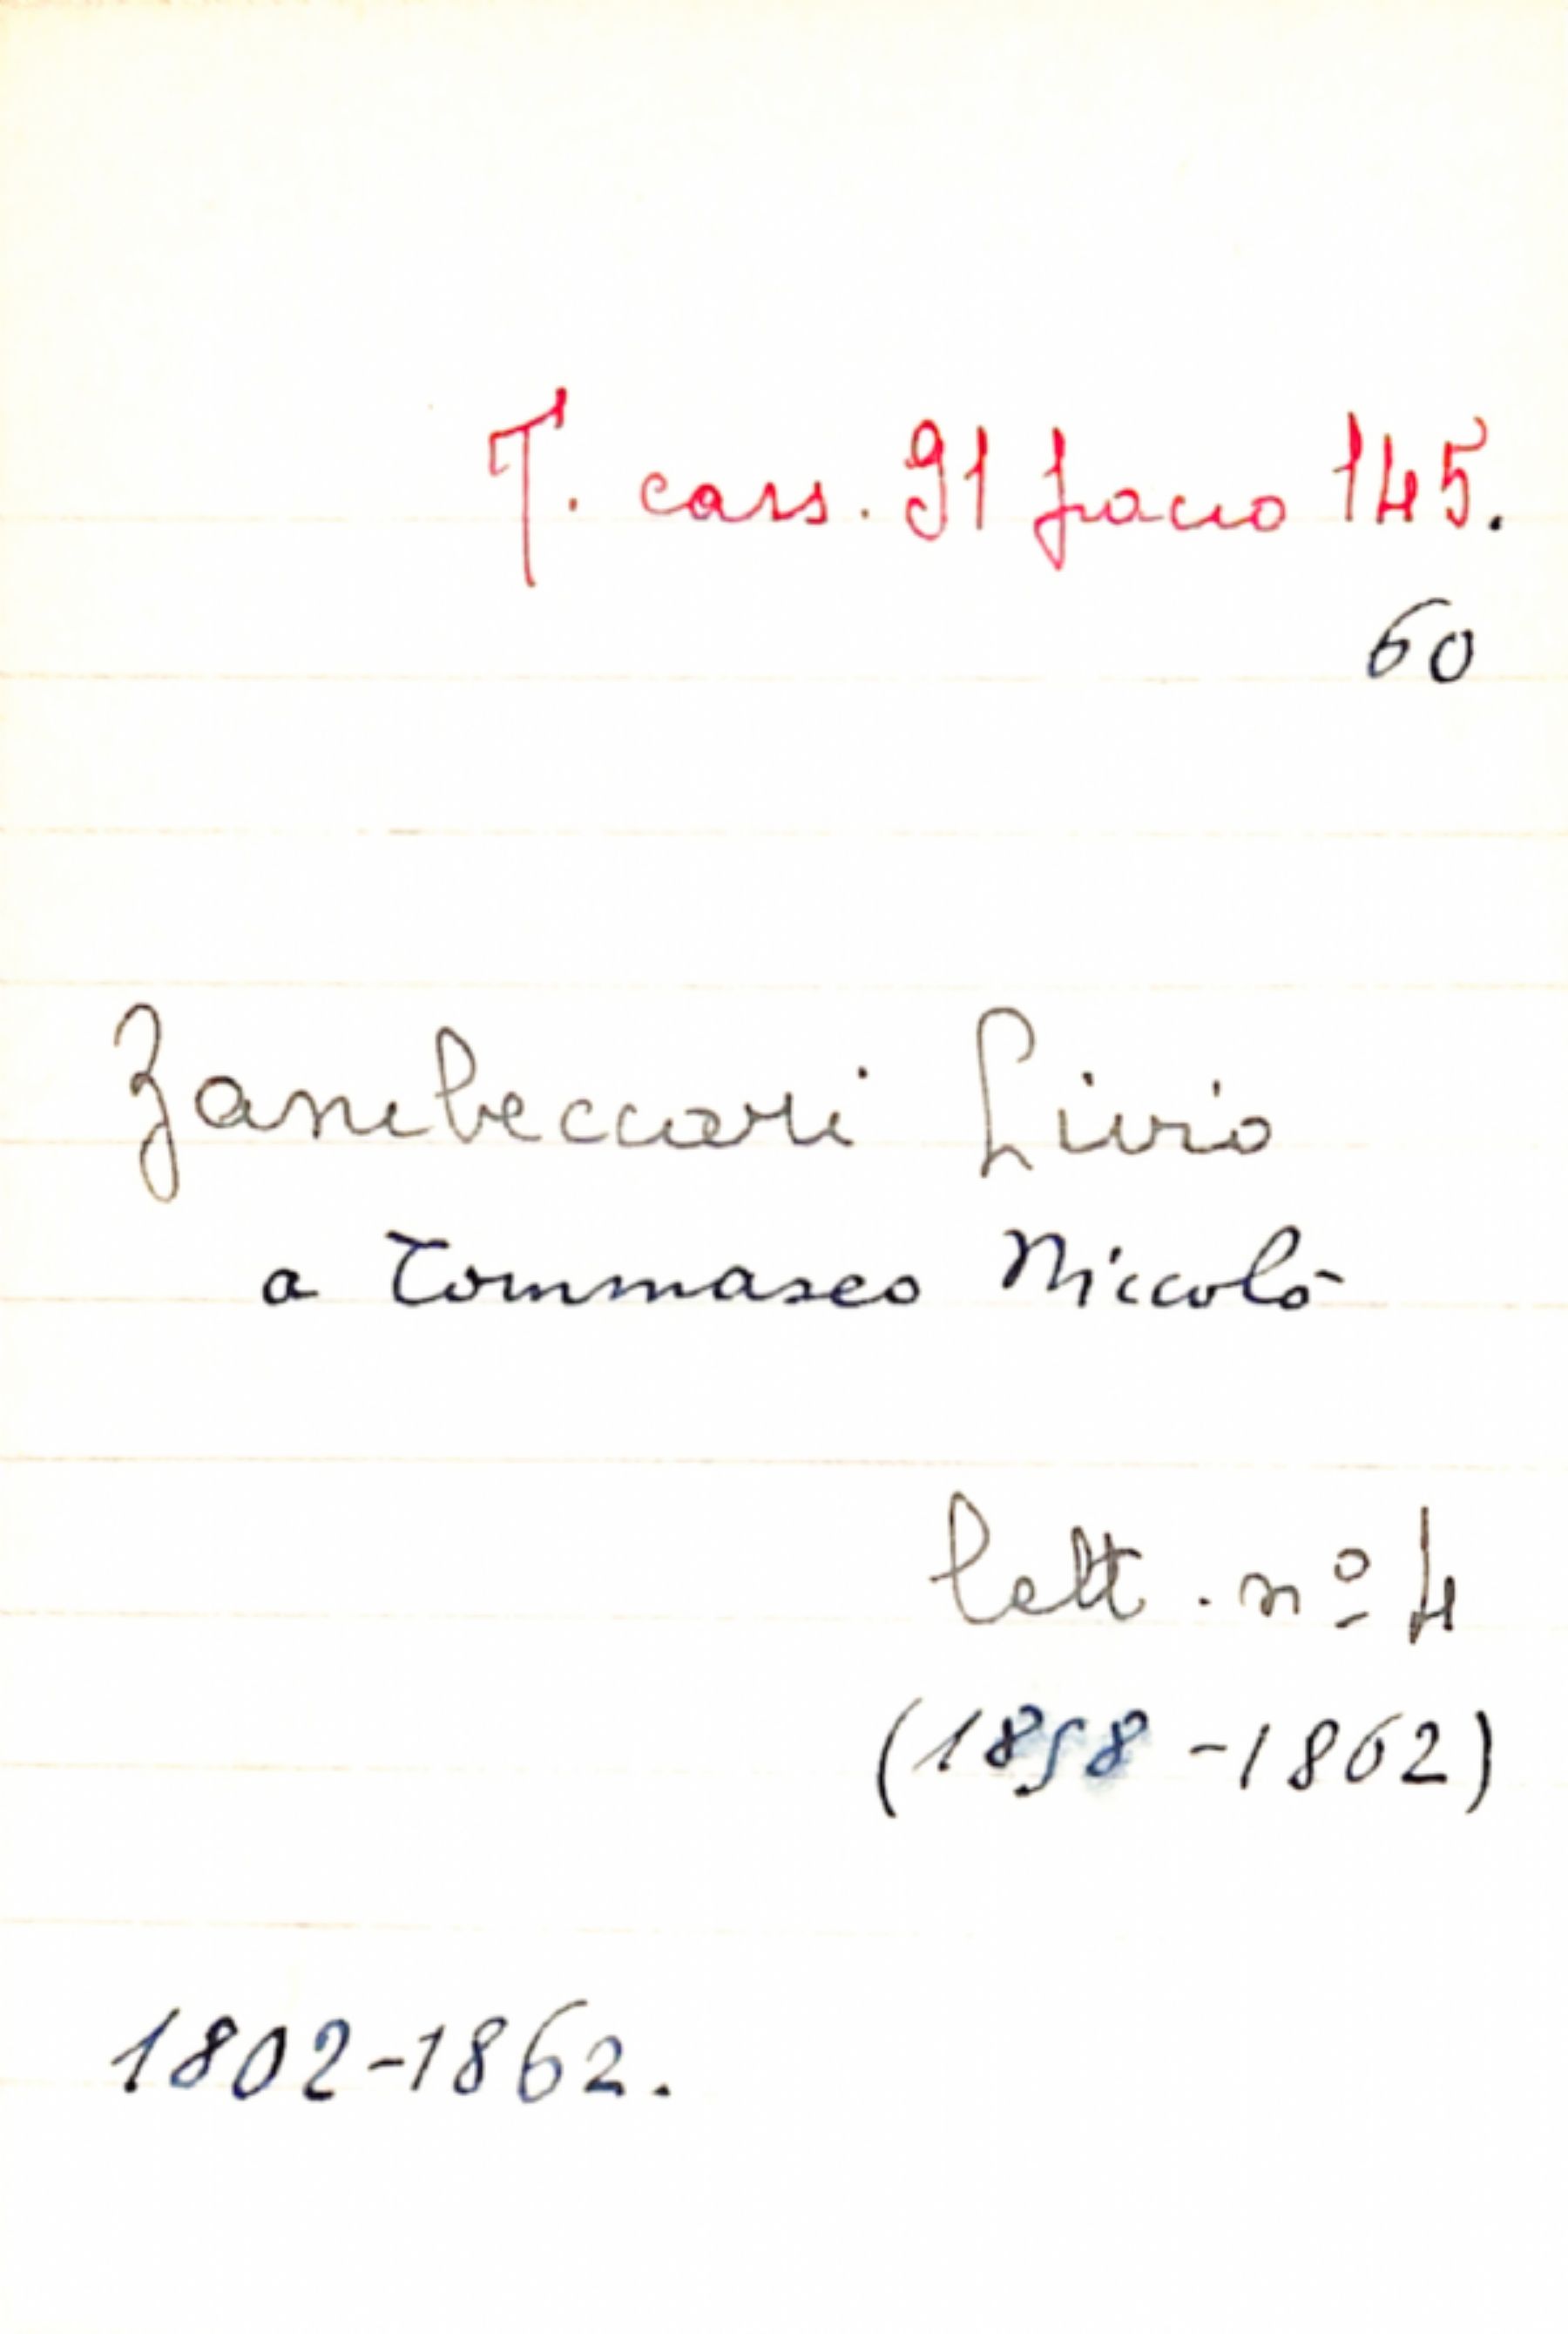 T. cass. 91 fascio 145.
60
Zambeccari Livio
a Tommaseo Niccolò
lett. nº 4
(1858-1862)
1802-1862.